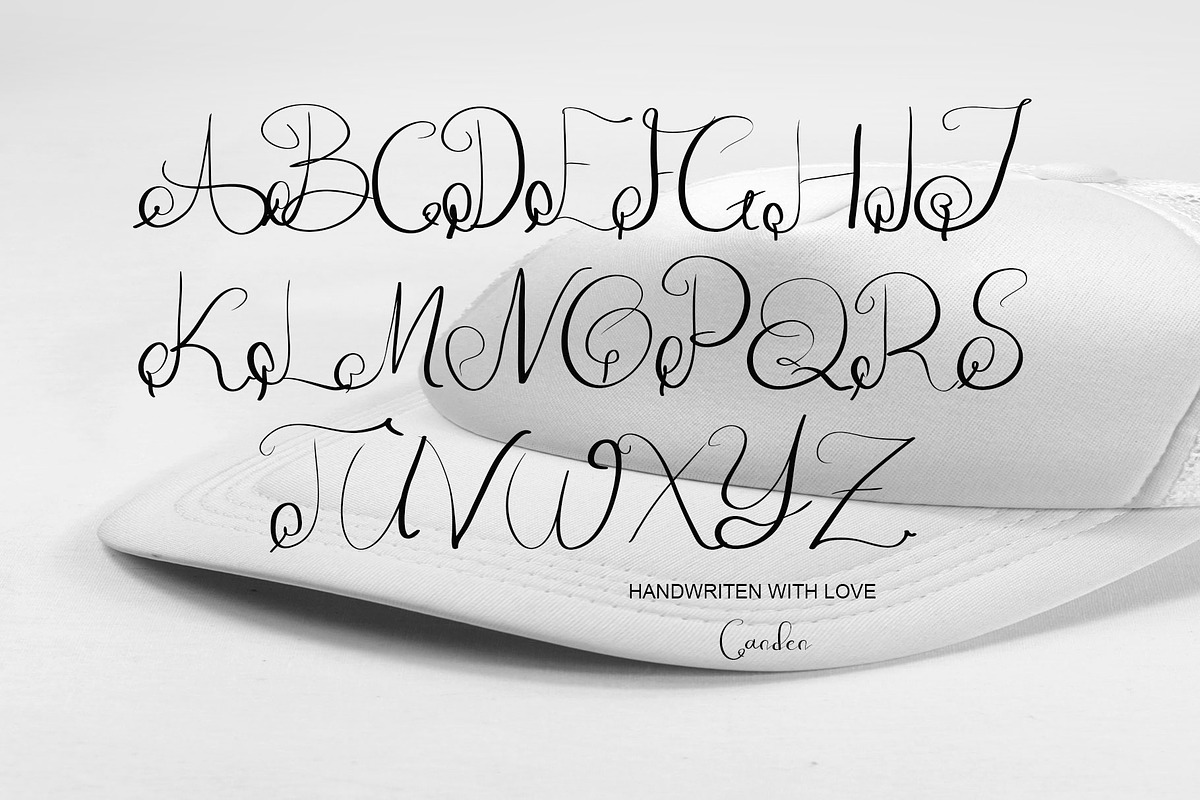 ABCDEFGHIJ
KLMNOPQRS
TUVWXYZ
HANDWRITEN WITH LOVE
Canden